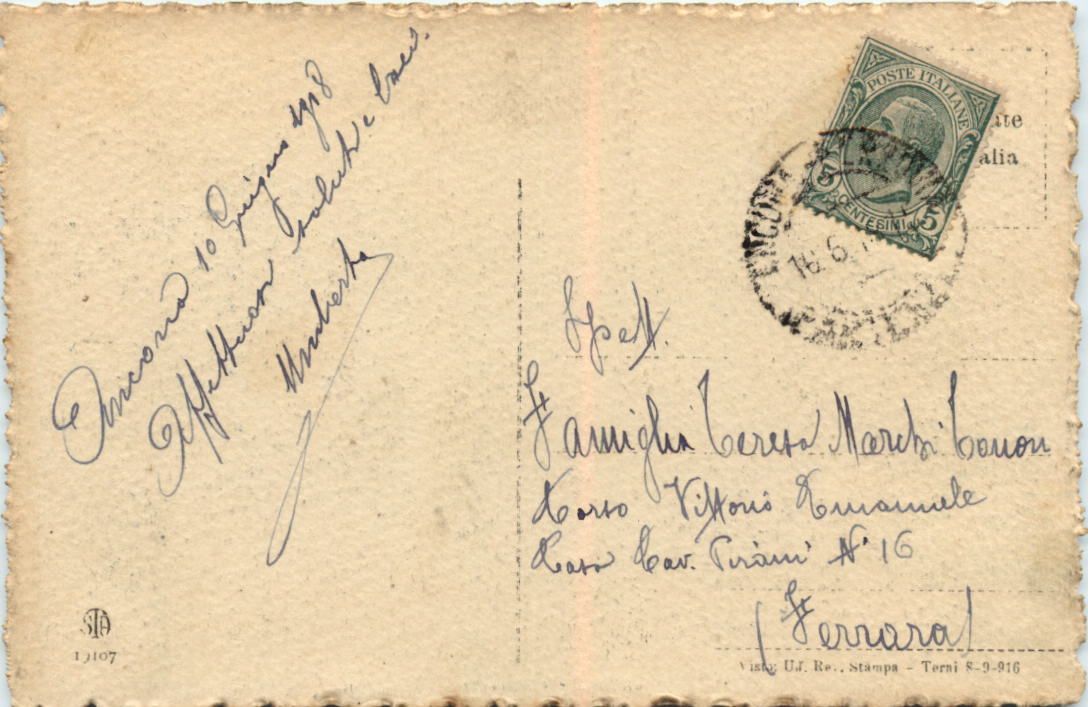 Ancona 10 Giugno 1918
Affettuosi saluti e baci.
Umberto
POSTE ITALIANE
5 CENTESIMI 5
alia
ANCONA
10.6.
Spett.
Famiglia Teresa Marchi
Corso Vittorio Emanuele
Casa Cav. Pirani N° 16
(Ferrara)
STA
19107
Visto: U.f. Rev. Stampa - Terni 8-9-916